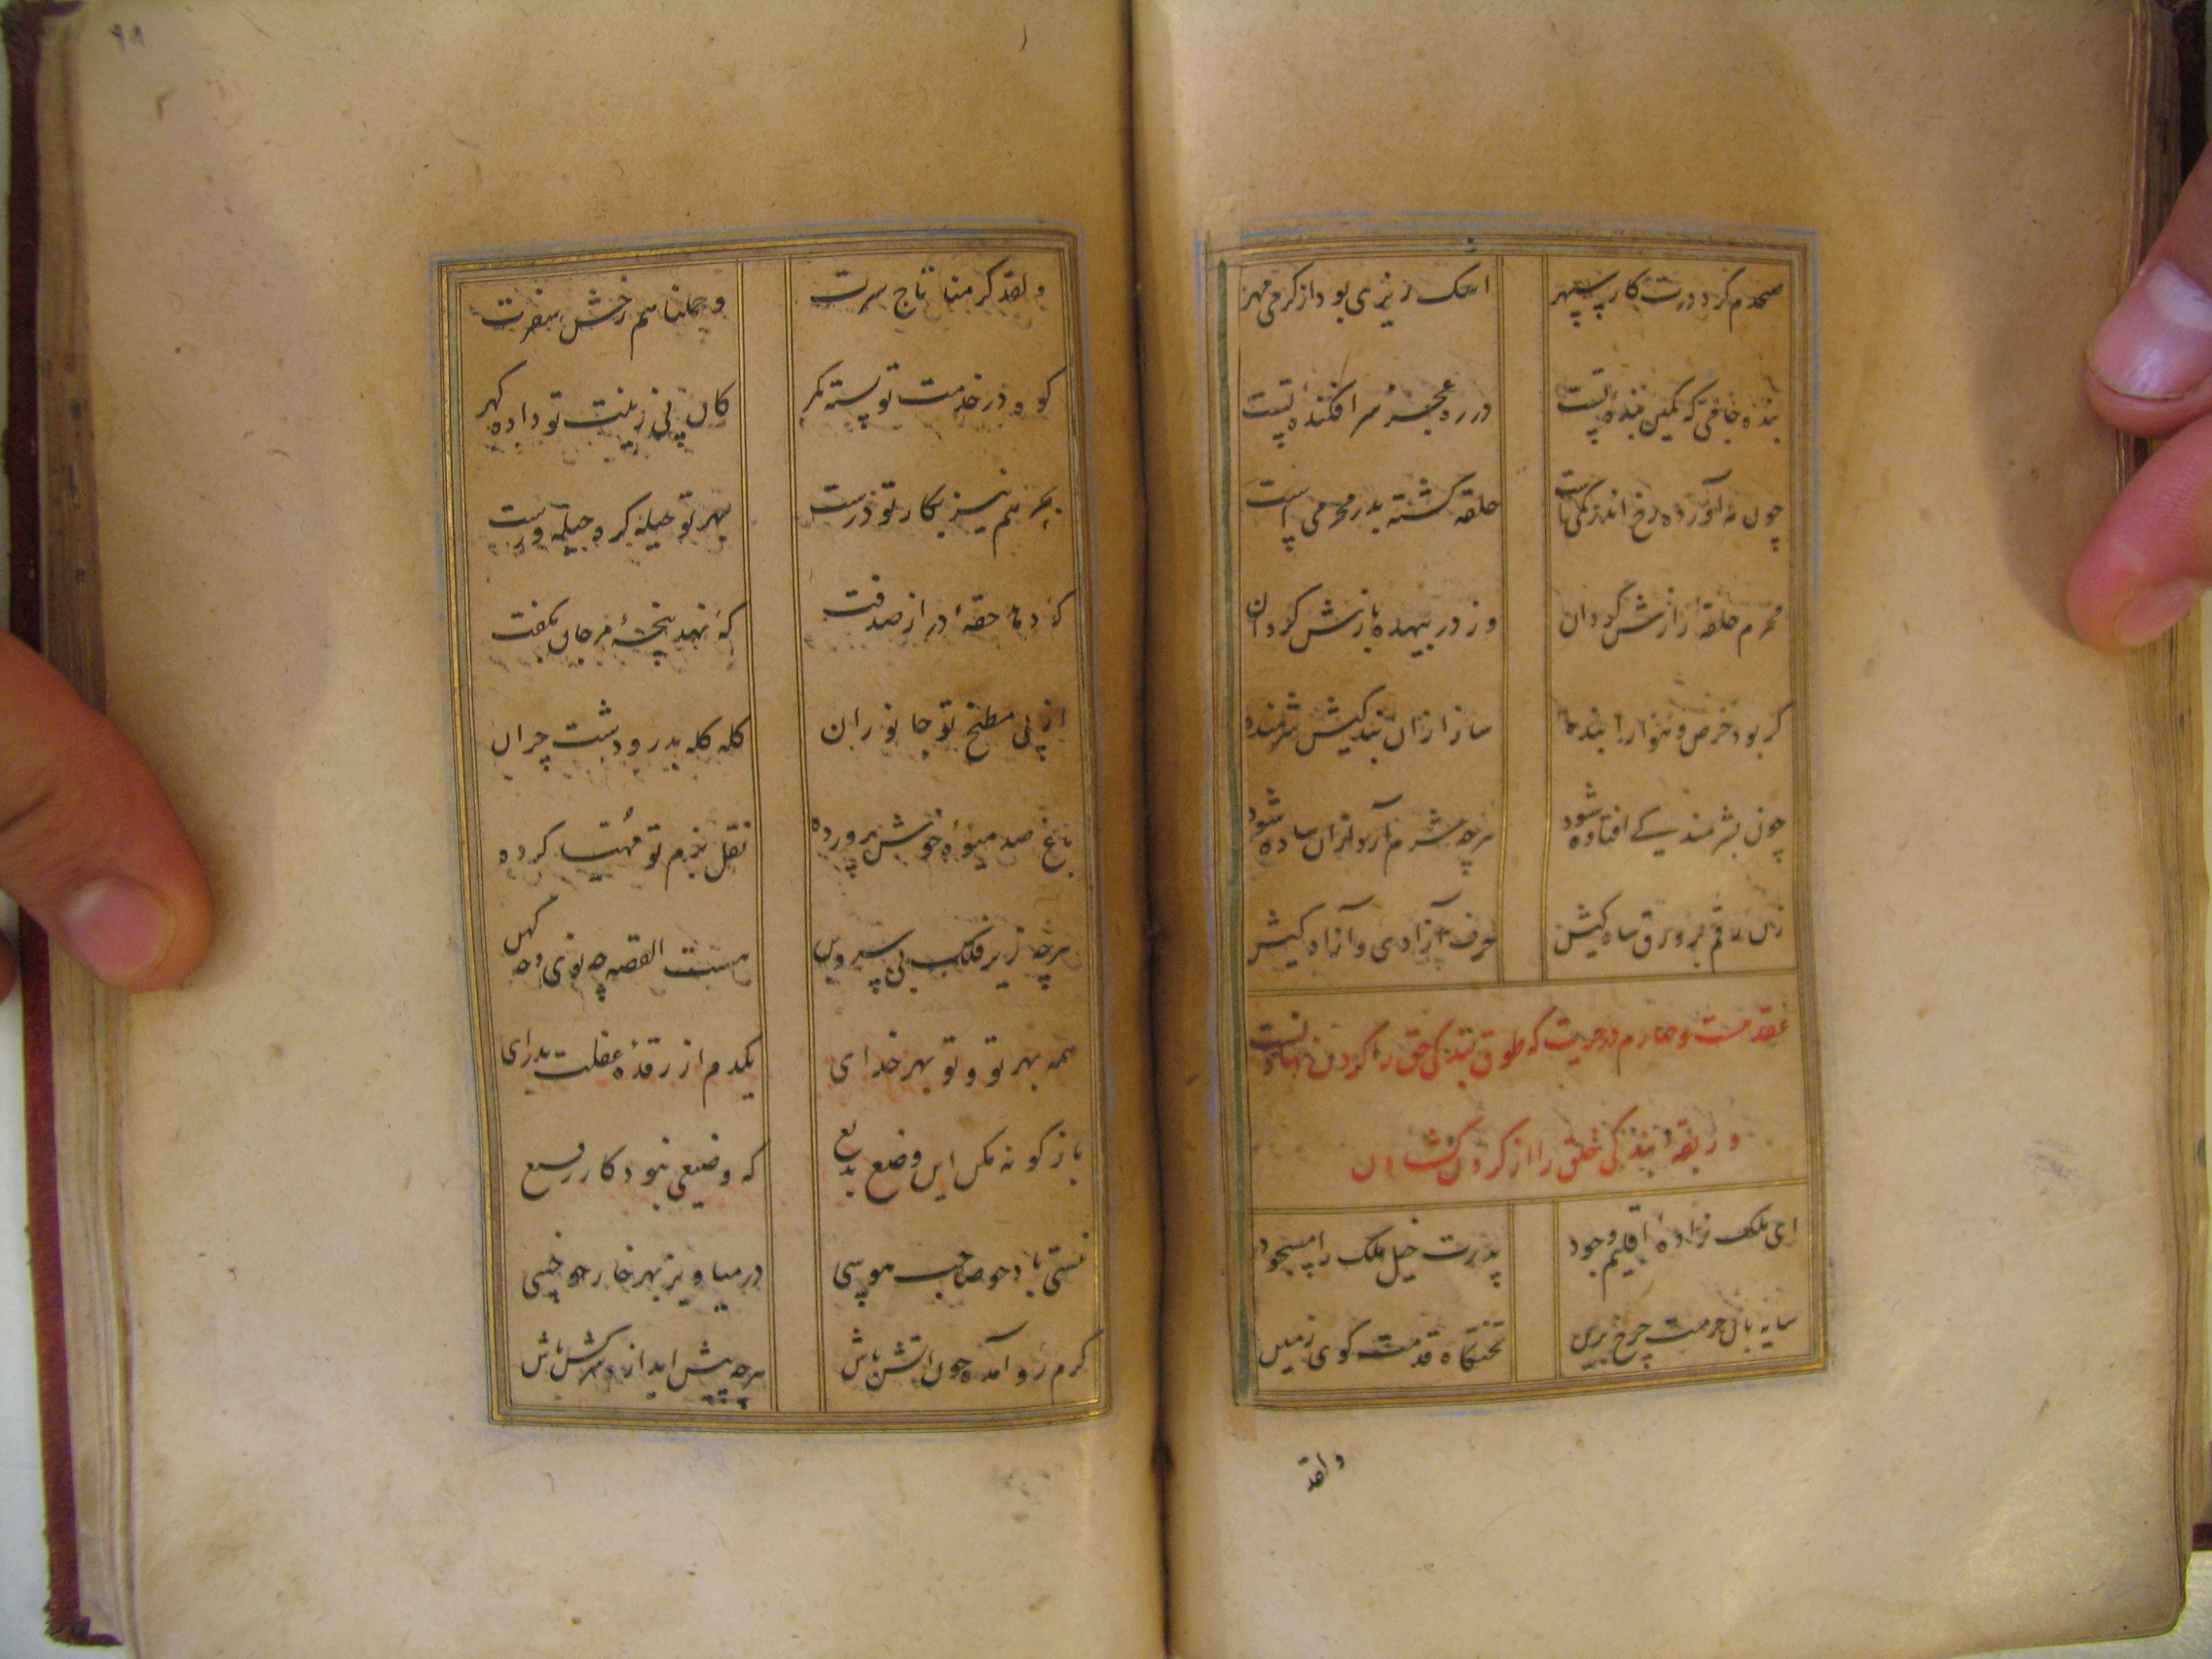 صبحدم کرد درت کار سپهر اشک ریزی بود از کرمی مهر
بنده جامی که کمین بنده تست در ره عجز سرافکنده تست
چون مه آورده رخ اندر کم و کاست حلقه کشته بدر محرمی است
محرم حلقهٔ رازش کردان وز در بیهده بازش کردان
کر بود حرص و هوا را بنده ساز ازان بندکیش شرمنده
چون بشرمندیکے افتاده شود هرچه شرم آرد ازان ساده شود
زن رقم بر ورق ساده کیش حرف آزادی و آزاده کیش
عقد بیست و چهارم در حریت که طوق بندکی حق را کردن نهادنست
و ربقهٔ بندکی خلق را از کردن کشادن
ای ملک زادهٔ اقلیم وجود پدرت خیل ملک را مسجود
سایه بان حرمت چرخ برین تختکاه قدمت کوی زمین
ولقد
۹۸
ولقد کرمنا تاج سرت و حملنا هم رخش سفرت
کوه در خدمت تو بسته کمر کان پی زینت تو داده کهر
بحر هم نیز بکار تو درست بهر تو حیله کر و حیله ورست
که دهد حقهٔ در از صدفت که نهد پنجهٔ مرجان بکفت
از پی مطبخ تو جانوران کله کله بدر و دشت چران
باغ صد میوهٔ خوش پرورده نقل بزم تو مهیت کرده
هرچه زیر فلک بی سر و بن هست القصه چه نوی و چه کهن
همه بهر تو و تو بهر خدای یکدم از رقدهٔ غفلت بدرای
بازکونه مکن این وضع بدیع که وضیعی نبود کار رفیع
نیستی باد چو صاحب هوسی در میاویز بهر خار و خسی
کرم رو آمده چون آتش باش هرچه پیش اید از و سرکش باش